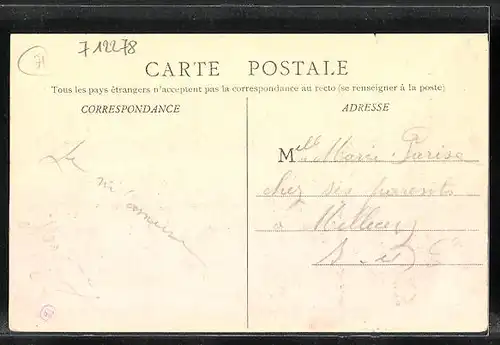 71
712278
CARTE POSTALE
Tous les pays étrangers n'acceptent pas la correspondance au recto (se renseigner à la poste)
CORRESPONDANCE
ADRESSE
Je
m'ennuie
Melle Marie Parise
chez ses parents
à
S. et L